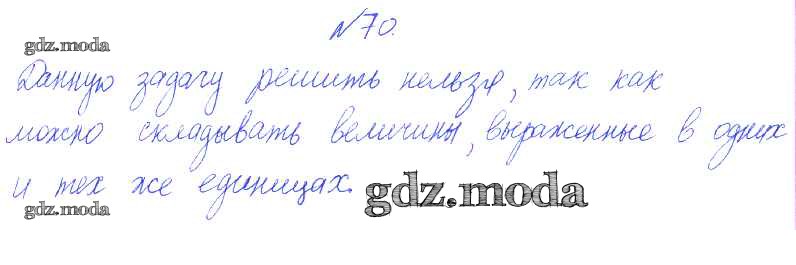 №70.
gdz.moda
Данную задачу решить нельзя, так как
можно складывать величины, выраженные в одних
и тех же единицах.
gdz.moda
gdz.moda